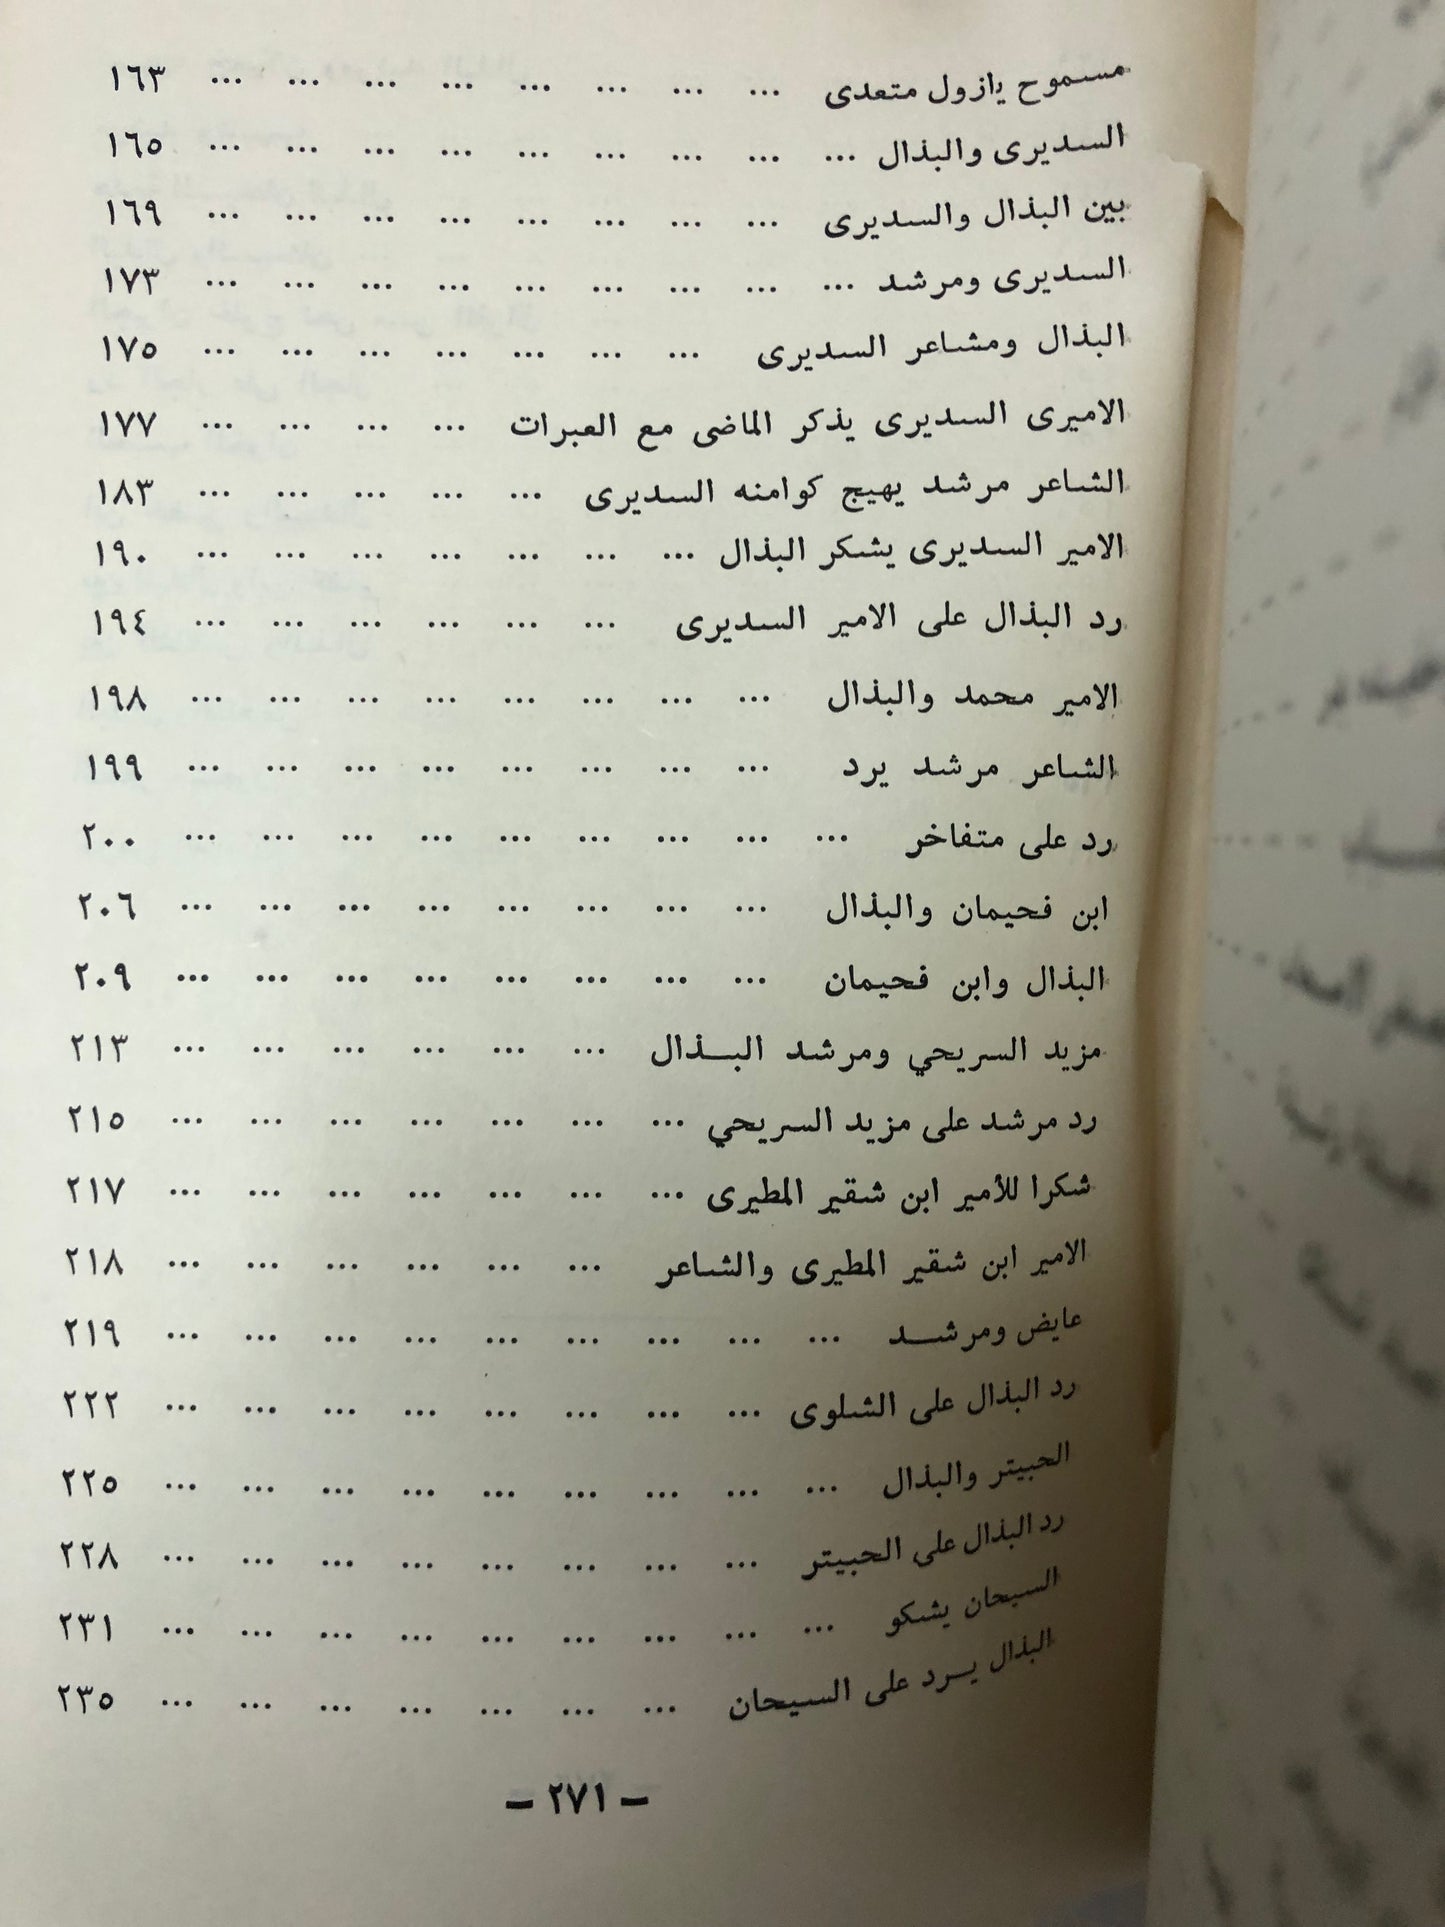 مسموح يازول متعدى ... ... ... ... ... ... ... ... ١٦٣
السديرى والبذال ... ... ... ... ... ... ... ... ... ١٦٥
بين البذال والسديرى ... ... ... ... ... ... ... ... ١٦٩
السديرى ومرشد ... ... ... ... ... ... ... ... ... ١٧٣
البذال ومشاعر السديرى ... ... ... ... ... ... ... ١٧٥
الاميرى السديرى يذكر الماضى مع العبرات ... ... ... ... ١٧٧
الشاعر مرشد يهيج كوامنه السديرى ... ... ... ... ... ١٨٣
الامير السديرى يشكر البذال ... ... ... ... ... ... ... ١٩٠
رد البذال على الامير السديرى ... ... ... ... ... ... ١٩٤
الامير محمد والبذال ... ... ... ... ... ... ... ... ١٩٨
الشاعر مرشد يرد ... ... ... ... ... ... ... ... ١٩٩
رد على متفاخر ... ... ... ... ... ... ... ... ... ٢٠٠
ابن فحيمان والبذال ... ... ... ... ... ... ... ... ٢٠٦
البذال وابن فحيمان ... ... ... ... ... ... ... ... ٢٠٩
مزيد السريحي ومرشد البــذال ... ... ... ... ... ... ٢١٣
رد مرشد على مزيد السريحي ... ... ... ... ... ... ... ٢١٥
شكرا للأمير ابن شقير المطيرى ... ... ... ... ... ... ... ٢١٧
الامير ابن شقير المطيرى والشاعر ... ... ... ... ... ... ٢١٨
عايض ومرشــد ... ... ... ... ... ... ... ... ... ٢١٩
رد البذال على الشلوى ... ... ... ... ... ... ... ... ٢٢٢
الحبيتر والبذال ... ... ... ... ... ... ... ... ... ٢٢٥
رد البذال على الحبيتر ... ... ... ... ... ... ... ... ٢٢٨
السيحان يشكو ... ... ... ... ... ... ... ... ... ٢٣١
البذال يــرد على السيحان ... ... ... ... ... ... ... ٢٣٥
– ٢٧١ –